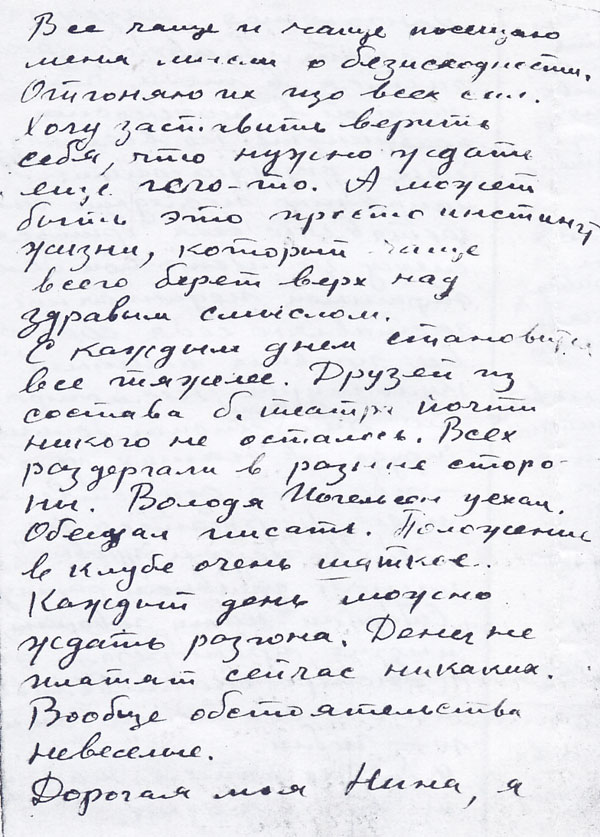 Все чаще и чаще посещаю
меня мысли о безисходности.
Отгоняю их изо всех сил.
Хочу заставить верить
себя, что нужно ждать
еще чего-то. А может
быть это просто инстинкт
жизни, который чаще
всего берет верх над
здравым смыслом.
С каждым днем становится
все тяжелее. Друзей из
состава б. театра почти
никого не осталось. Всех
раздергали в разные сторо-
ны. Володя уехал.
Обещал писать. Положение
в клубе очень шаткое.
Каждый день можно
ждать разгона. Денег не
платят сейчас никаких.
Вообще обстоятельства
невеселые.
Дорогая моя Нина, я